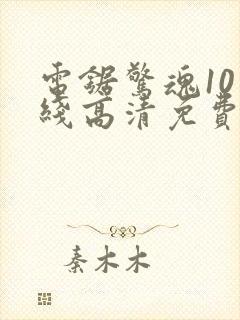 電鋸驚魂10
綫高清免費
秦木木